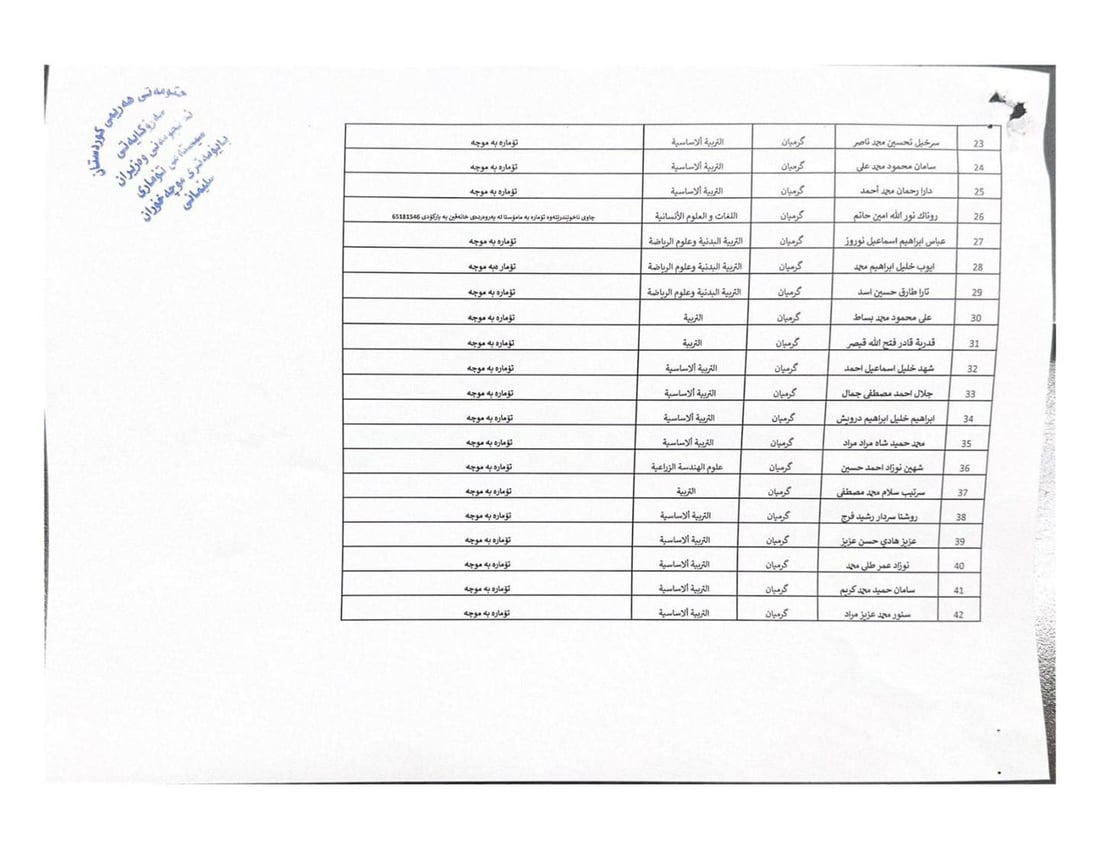 حکومەتی هەرێمی کوردستان
سەرۆکایەتی
ئەنجومەنی وەزیران
سیستمی تۆماری
بایۆمەتری موچەخۆران
سلێمانی
23 سرخيل تحسين محمد ناصر گرمیان التربية ألاساسية تۆماره به موچه
24 سامان محمود محمد علي گرمیان التربية ألاساسية تۆماره به موچه
25 دارا رحمان محمد أحمد گرمیان التربية ألاساسية تۆماره به موچه
26 روناك نور الله امين حاتم گرمیان اللغات و العلوم الأنسانية چاوی ناخوێندرێتەوە تۆمارە بە مامۆستا لە پەروەردەی خانەقین بە بارکۆدی 65181546
27 عباس ابراهيم اسماعيل نوروز گرمیان التربية البدنية وعلوم الرياضة تۆماره به موچه
28 ايوب خليل ابراهيم محمد گرمیان التربية البدنية وعلوم الرياضة تۆمار ەبه موچه
29 تارا طارق حسين اسد گرمیان التربية البدنية وعلوم الرياضة تۆماره به موچه
30 علي محمود محمد بساط گرمیان التربية تۆماره به موچه
31 قدرية قادر فتح الله قيصر گرمیان التربية تۆماره به موچه
32 شهد خليل اسماعيل احمد گرمیان التربية ألاساسية تۆماره به موچه
33 جلال احمد مصطفى جمال گرمیان التربية ألاساسية تۆماره به موچه
34 ابراهيم خليل ابراهيم درويش گرمیان التربية ألاساسية تۆماره به موچه
35 محمد حميد شاه مراد مراد گرمیان التربية ألاساسية تۆماره به موچه
36 شهين نوزاد احمد حسين گرمیان علوم الهندسة الزراعية تۆماره به موچه
37 سرتيب سلام محمد مصطفى گرمیان التربية تۆماره به موچه
38 روشنا سردار رشيد فرج گرمیان التربية ألاساسية تۆماره به موچه
39 عزيز هادي حسن عزيز گرمیان التربية ألاساسية تۆماره به موچه
40 نوزاد عمر طلى محمد گرمیان التربية ألاساسية تۆماره به موچه
41 سامان حميد محمد كريم گرمیان التربية ألاساسية تۆماره به موچه
42 سنور محمد عزيز مراد گرمیان التربية ألاساسية تۆماره به موچه